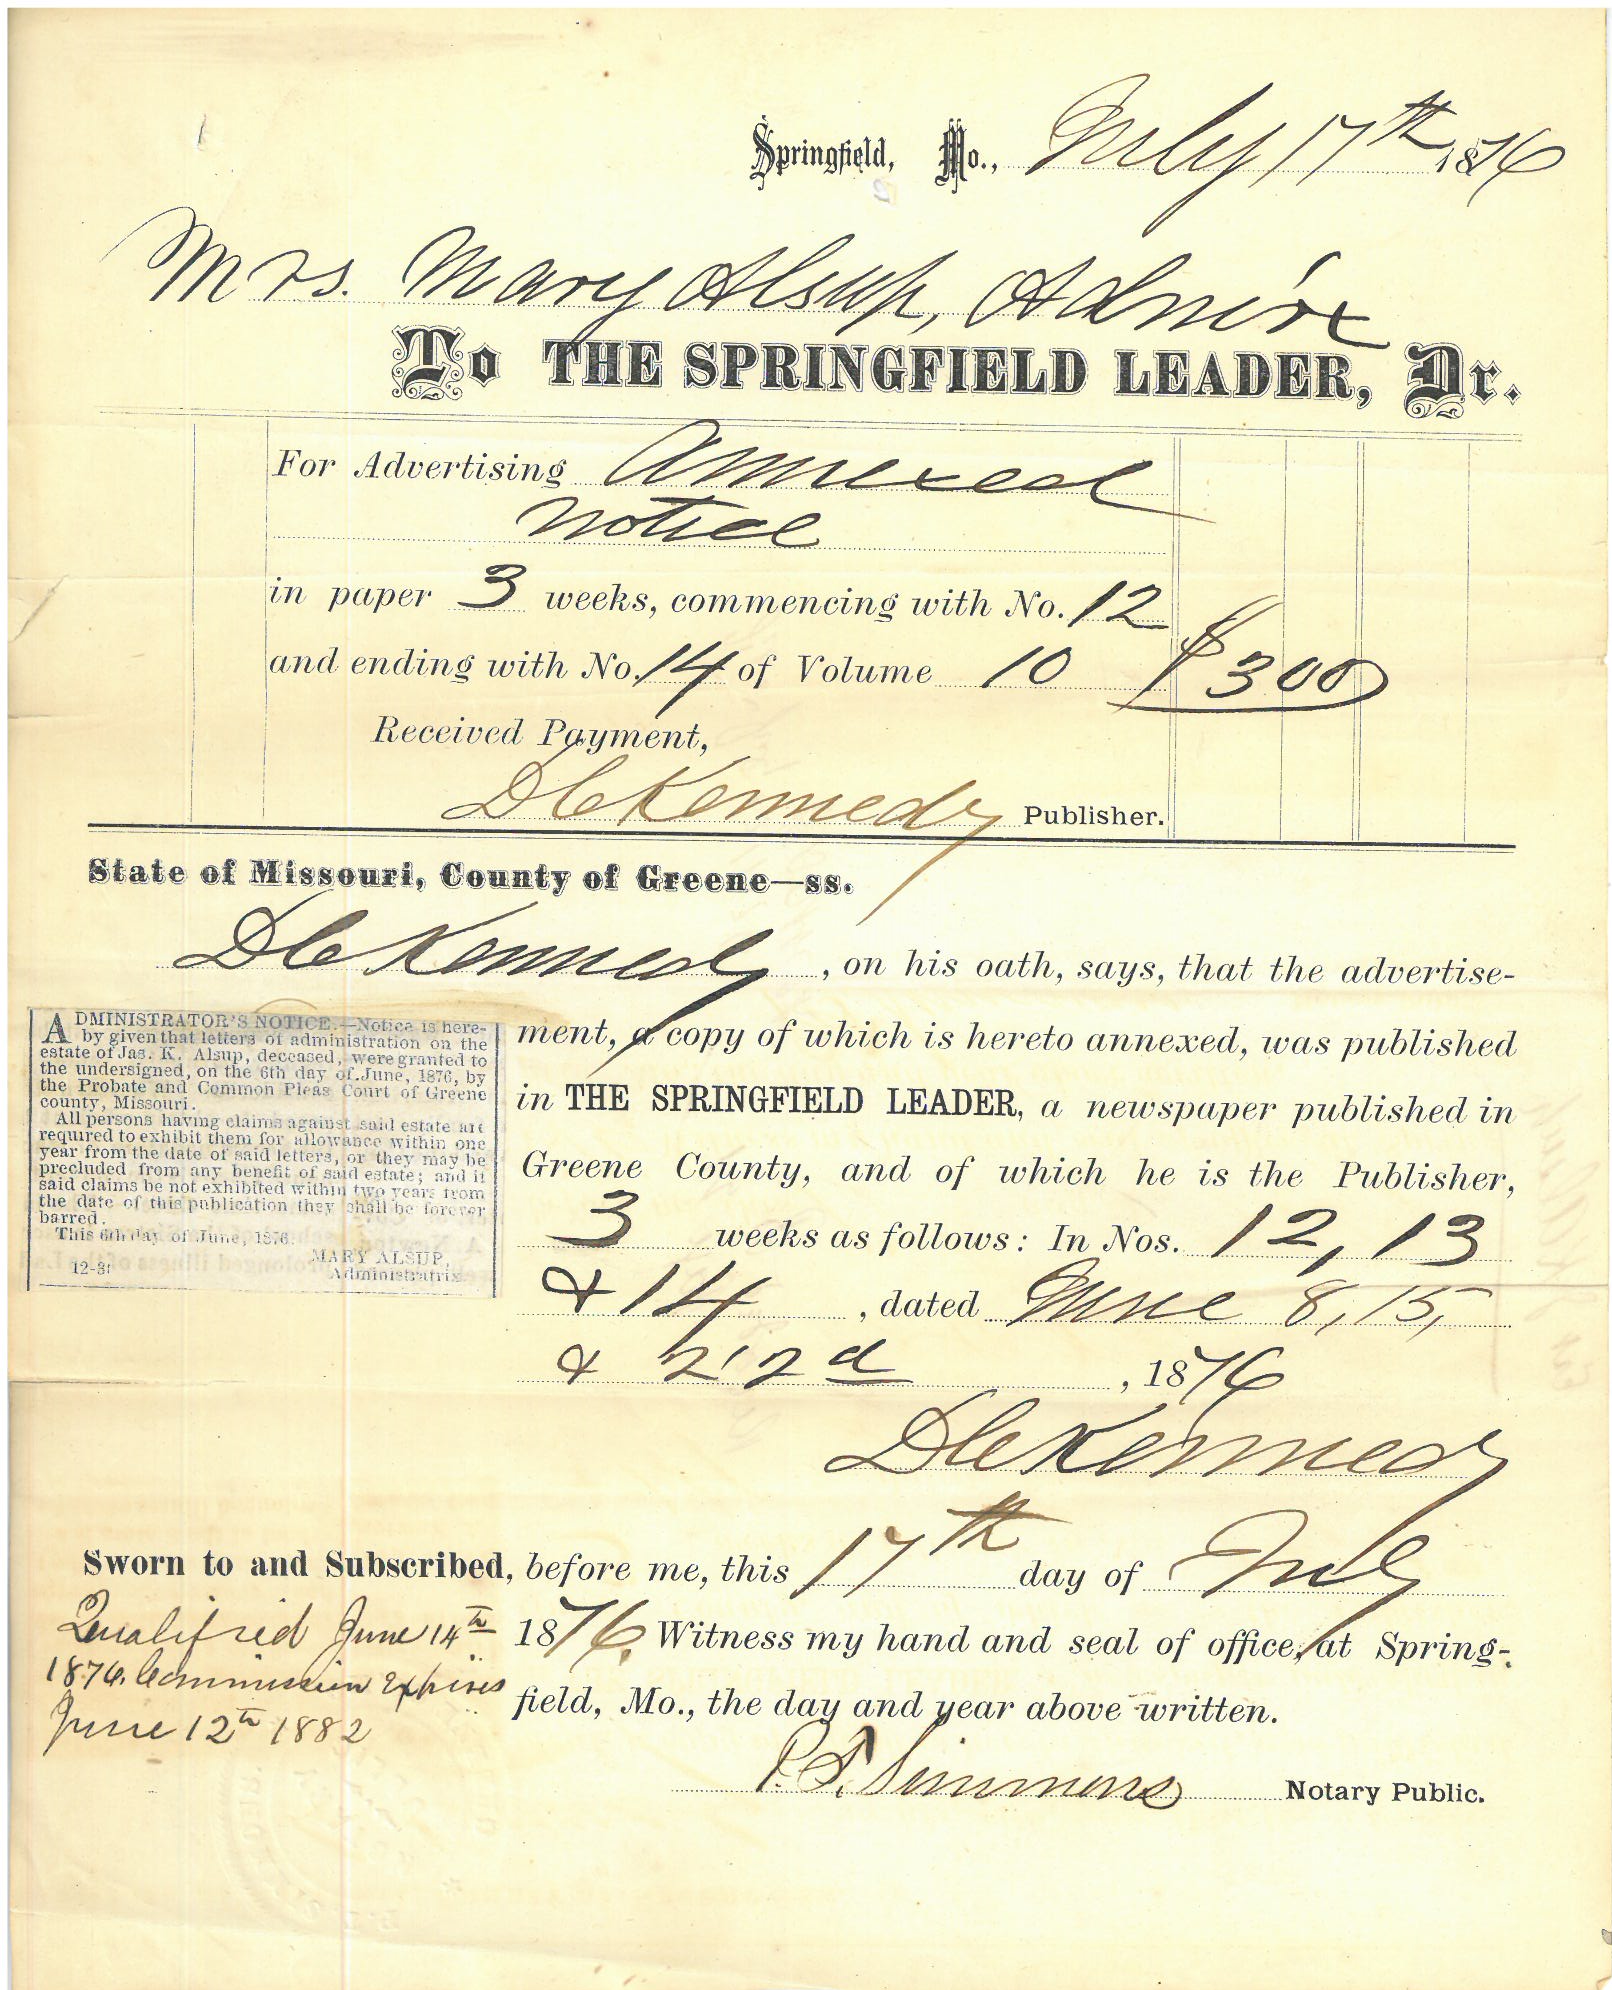 Springfield, Mo., July 17th, 1876
Mrs. Mary Alsup, Admi'rx
To THE SPRINGFIELD LEADER, Dr.
For Advertising Annexed
Notice
in paper 3 weeks, commencing with No. 12
and ending with No. 14 of Volume 10 $3 00
Received Payment,
D C Kennedy Publisher.
State of Missouri, County of Greene—ss.
D C Kennedy, on his oath, says, that the advertise-
ment, a copy of which is hereto annexed, was published
in THE SPRINGFIELD LEADER, a newspaper published in
Greene County, and of which he is the Publisher,
3 weeks as follows: In Nos. 12, 13
& 14, dated June 8, 15,
& 22d, 1876
D C Kennedy
ADMINISTRATOR'S NOTICE.—Notice is here-
by given that letters of administration on the
estate of Jas. K. Alsup, deceased, were granted to
the undersigned, on the 6th day of June, 1876, by
the Probate and Common Pleas Court of Greene
county, Missouri.
All persons having claims against said estate are
required to exhibit them for allowance within one
year from the date of said letters, or they may be
precluded from any benefit of said estate; and if
said claims be not exhibited within two years from
the date of this publication they shall be forever
barred.
This 6th day of June, 1876.
MARY ALSUP,
Administratrix.
12-3t
Sworn to and Subscribed, before me, this 17th day of July
1876. Witness my hand and seal of office, at Spring-
field, Mo., the day and year above written.
Qualified June 14th
1876. Commission Expires
June 12th 1882
P. S. Simmons Notary Public.